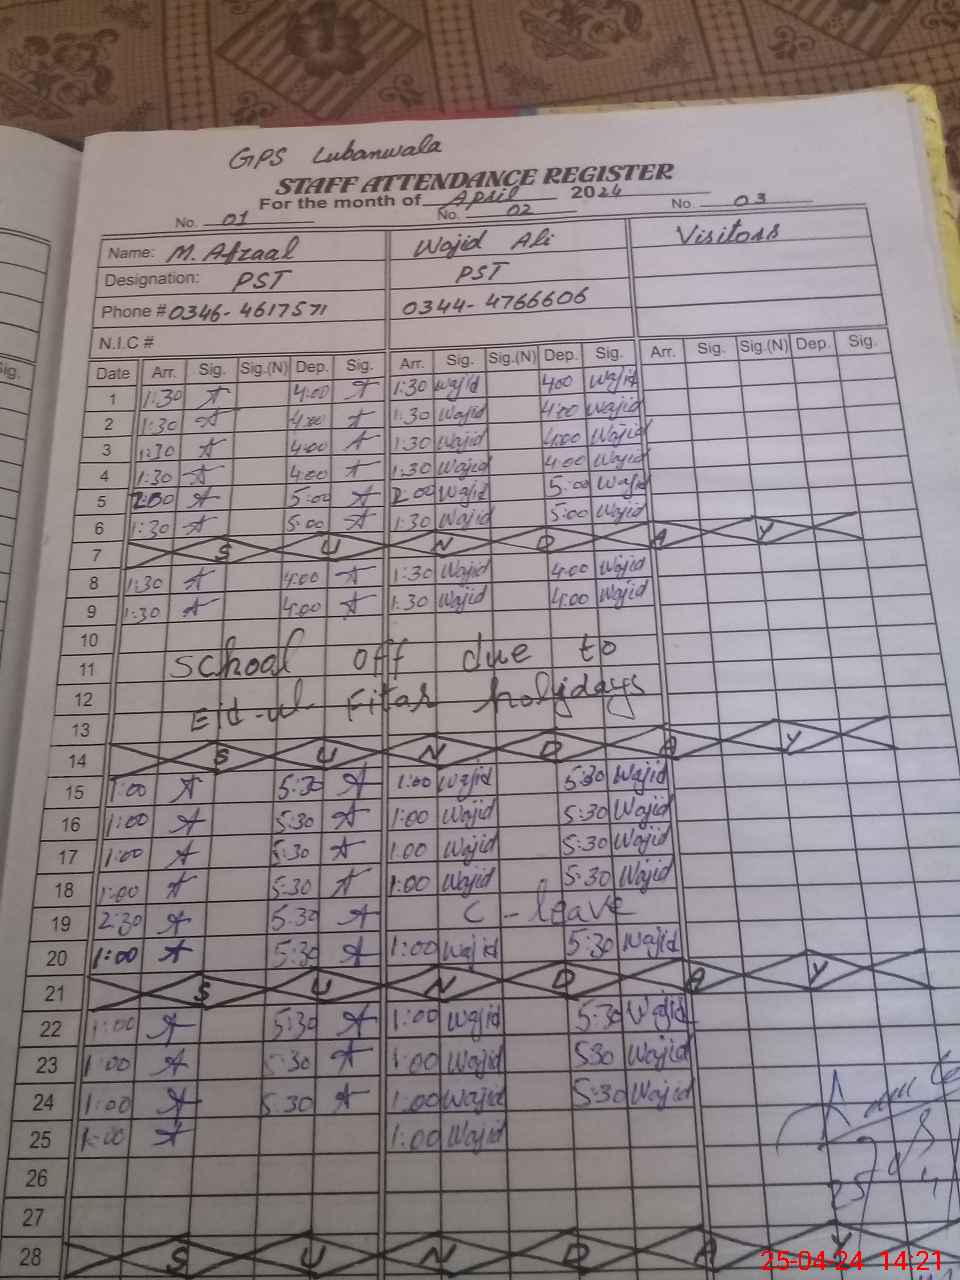 GPS Lubanwala
STAFF ATTENDANCE REGISTER
For the month of April 2024
No. 01 No. 02 No. 03
Name: M. Afzaal Wajid Ali Visitors
Designation: PST PST
Phone # 0346-4617571 0344-4766606
N.I.C #
ig.
Date Arr. Sig. Sig.(N) Dep. Sig. Arr. Sig. Sig.(N) Dep. Sig. Arr. Sig. Sig.(N) Dep. Sig.
1 1:30 A 4:00 A 1:30 Wajid 400 Wajid
2 1:30 A 4:00 A 1:30 Wajid 4:00 Wajid
3 1:30 A 4:00 A 1:30 Wajid 4:00 Wajid
4 1:30 A 4:00 A 1:30 Wajid 4:00 Wajid
5 2:00 A 5:00 A 2:00 Wajid 5:00 Wajid
6 1:30 A 5:00 A 1:30 Wajid 5:00 Wajid
7 S U N D A Y
8 1:30 A 4:00 A 1:30 Wajid 4:00 Wajid
9 1:30 A 4:00 A 1:30 Wajid 4:00 Wajid
10
11 School off due to
12 Eid-ul-Fitar holidays
13
14 S U N D A Y
15 1:00 A 5:30 A 1:00 Wajid 5:30 Wajid
16 1:00 A 5:30 A 1:00 Wajid 5:30 Wajid
17 1:00 A 5:30 A 1:00 Wajid 5:30 Wajid
18 1:00 A 5:30 A 1:00 Wajid 5:30 Wajid
19 2:30 A 5:30 A C-leave
20 1:00 A 5:30 A 1:00 Wajid 5:30 Wajid
21 S U N D A Y
22 1:00 A 5:30 A 1:00 Wajid 5:30 Wajid
23 1:00 A 5:30 A 1:00 Wajid 530 Wajid
24 1:00 A 5:30 A 1:00 Wajid 5:30 Wajid
25 1:00 A 1:00 Wajid
26
27
28 S U N D A Y
25-04-24 14:21